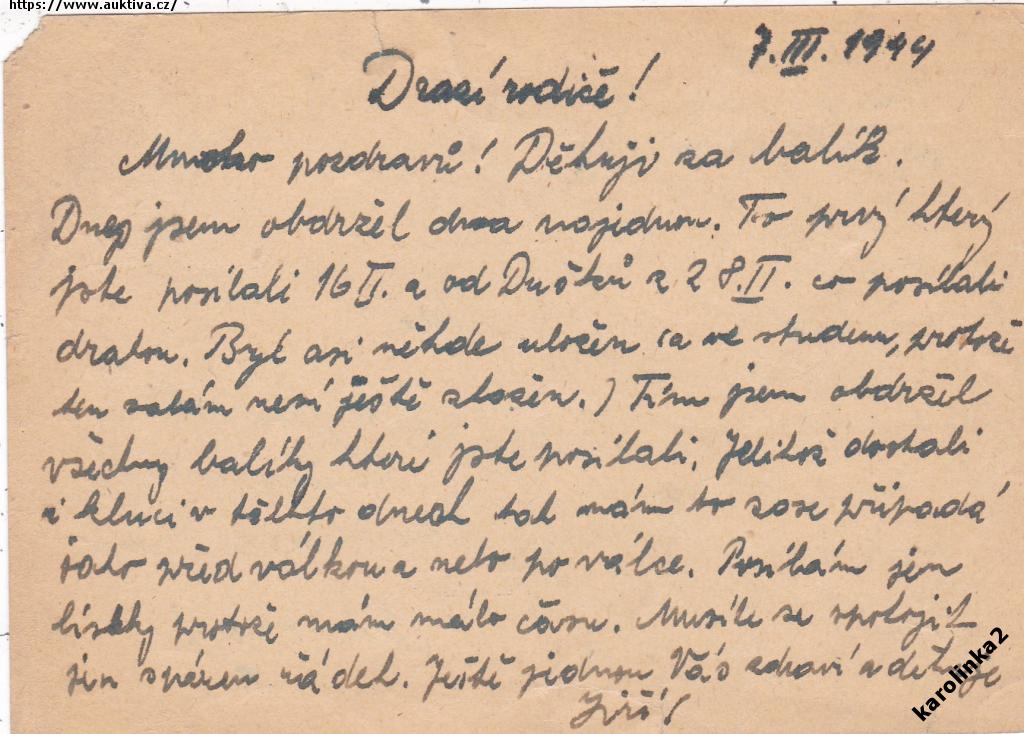 https://www.auktiva.cz/
7. III. 1944
Drazí rodiče!
Mnoho pozdravů! Děkuji za balík.
Dnes jsem obdržel dva najednou. To prvý který
jste posílali 16 II. a od Dušků z 28. II. co posílali
dratou. Byl asi někde uložen (a ve studenu, protože
ten salám není ještě zkažen.) Tím jsem obdržel
všechny balíky které jste posílali. Jelikož dostali
i kluci v těchto dnech tak nám to zase připadá
jako před válkou a nebo po válce. Posílám jen
lístky protože mám málo času. Musíte se spokojit
jen s párem řádek. Ještě jednou Vás zdraví a děkuje
Jiří!
karolinka2